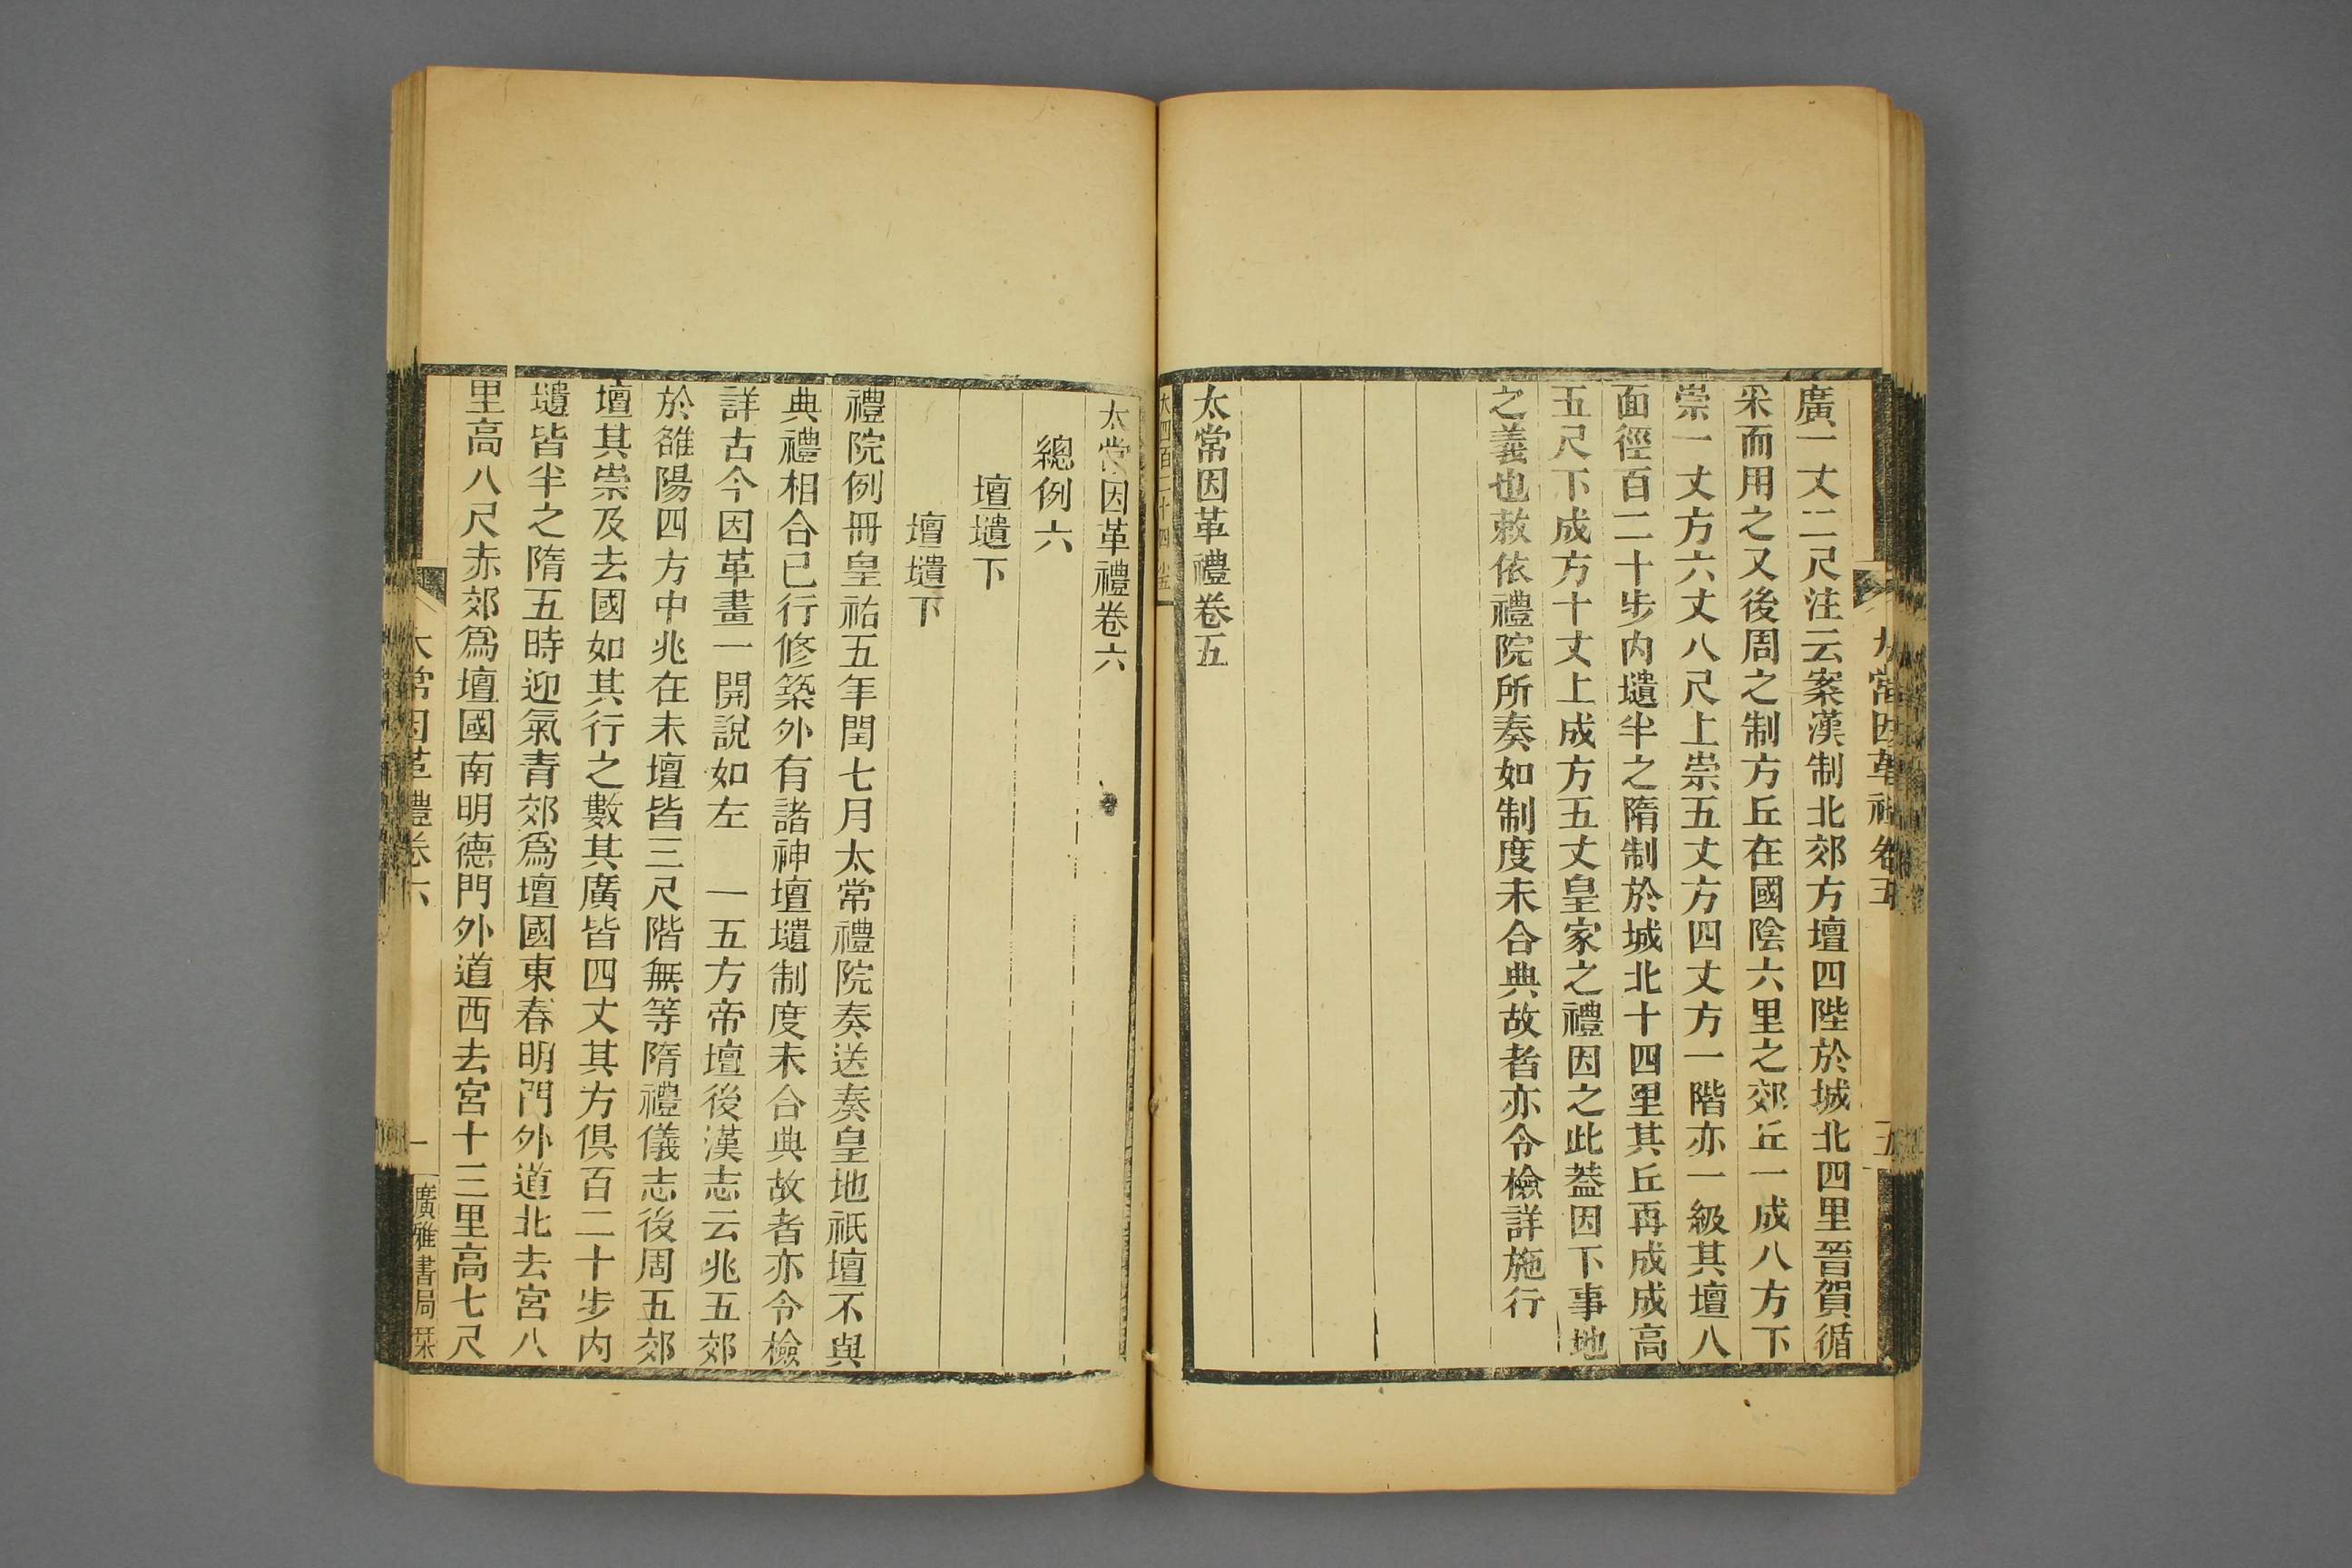 太常因革禮卷五
五
廣一丈二尺注云案漢制北郊方壇四陛於城北四里晉賀循
采而用之又後周之制方丘在國陰六里之郊丘一成八方下
崇一丈方六丈八尺上崇五丈方四丈方一階亦一級其壇八
面徑百二十步内壝半之隋制於城北十四里其丘再成成高
五尺下成方十丈上成方五丈皇家之禮因之此葢因下事地
之義也敕依禮院所奏如制度未合典故者亦令檢詳施行
太常因革禮卷五
大四百二十四 小五
太常因革禮卷六
總例六
壇壝下
壇壝下
禮院例冊皇祐五年閏七月太常禮院奏送奏皇地祇壇不與
典禮相合已行修築外有諸神壇壝制度未合典故者亦令檢
詳古今因革畫一開說如左　一五方帝壇後漢志云兆五郊
於雒陽四方中兆在未壇皆三尺階無等隋禮儀志後周五郊
壇其崇及去國如其行之數其廣皆四丈其方俱百二十步内
壝皆半之隋五時迎氣青郊爲壇國東春明門外道北去宮八
里高八尺赤郊爲壇國南明德門外道西去宮十三里高七尺
太常因革禮卷六
一
廣雅書局栞